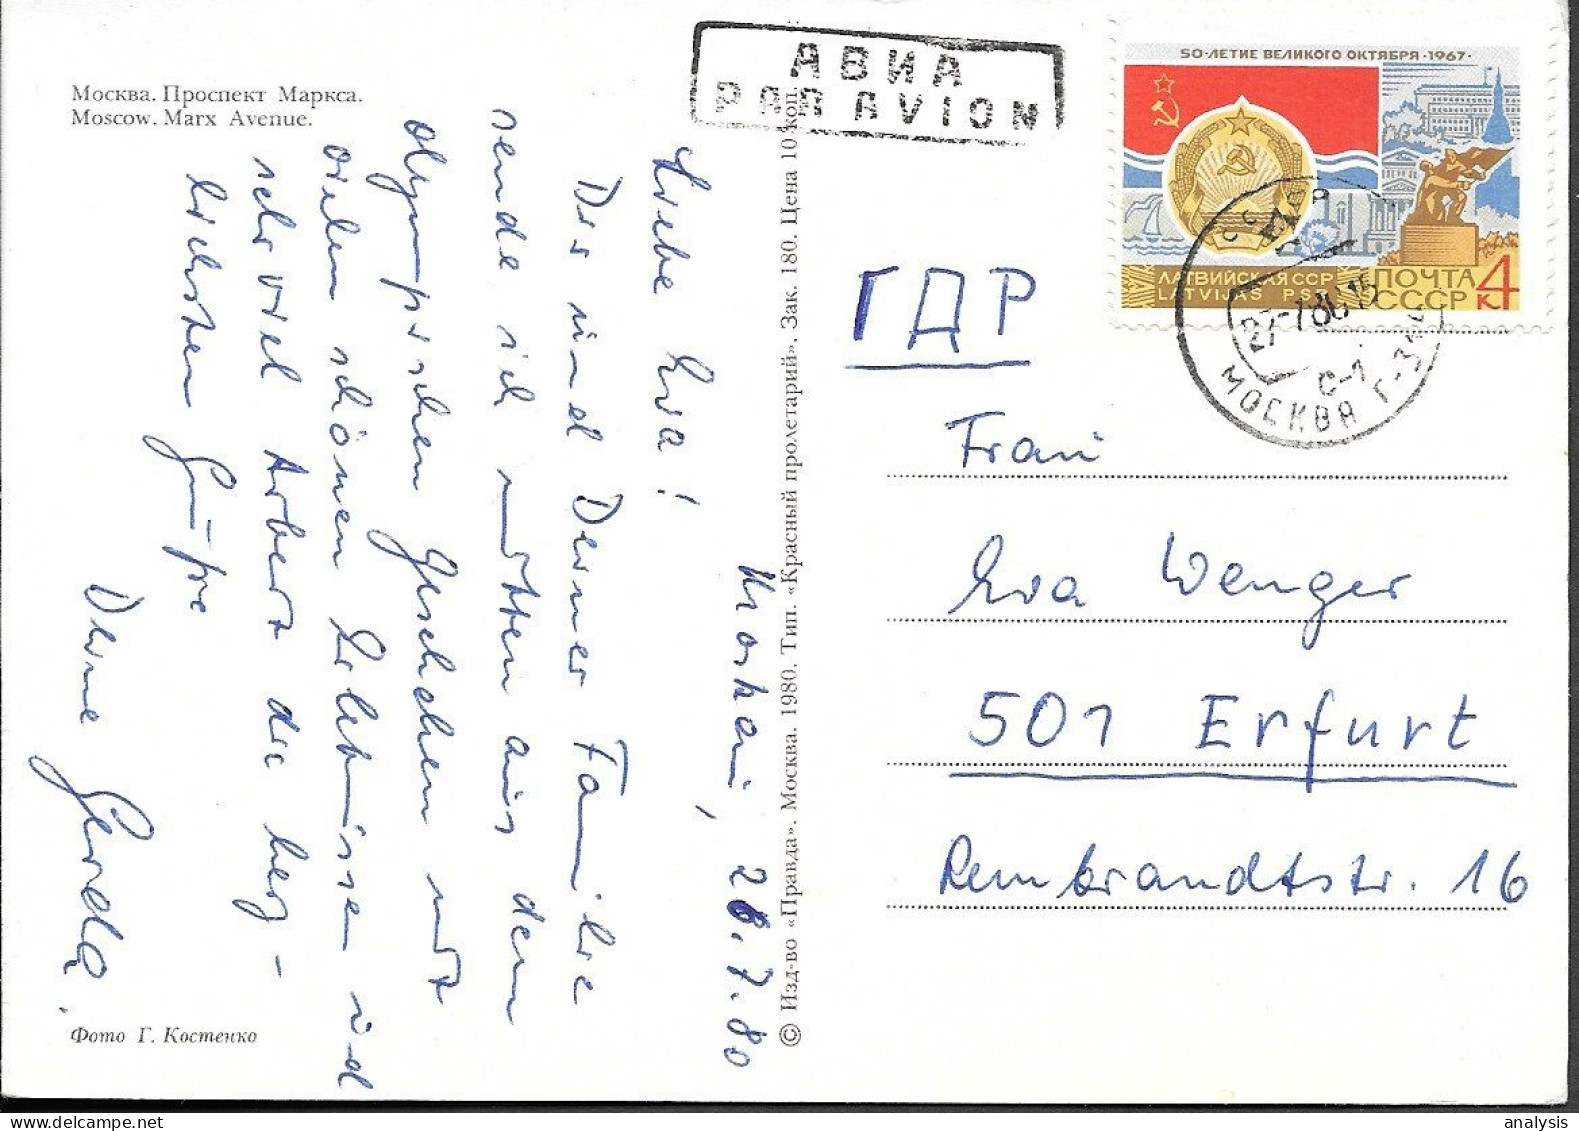 Москва. Проспект Маркса.
Moscow. Marx Avenue.
АВИА
PAR AVION
50-ЛЕТИЕ ВЕЛИКОГО ОКТЯБРЯ · 1967 ·
ЛАТВИЙСКАЯ ССР
LATVIJAS PSR
ПОЧТА
СССР
4 К
СССР
27-7 80 15
С-1
МОСКВА Г-3
Moskau, 26.7.80
Liebe Eva!
Dir und Deiner Familie
sende ich mitten aus dem
olympischen Geschehen mit
vielen schönen Erlebnissen und
sehr viel Arbeit die herz-
lichsten Grüße
Deine Gerda.
Фото Г. Костенко
© Изд-во «Правда». Москва. 1980. Тип. «Красный пролетарий». Зак. 180. Цена 10 коп.
ГДР
Frau
Eva Wenger
501 Erfurt
Rembrandtstr. 16
analysis